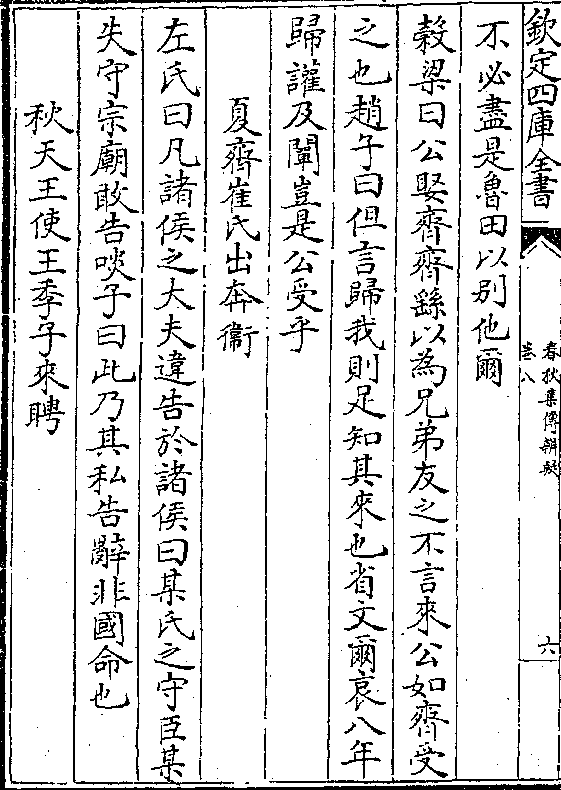 欽定四庫全書
春秋集傳辨疑
卷八
六
不必盡是魯田以别他爾
榖梁曰公娶齊齊繇以為兄弟友之不言來公如齊受
之也趙子曰但言歸我則足知其來也省文爾哀八年
歸讙及闡豈是公受乎
夏齊崔氏出奔衞
左氏曰凡諸侯之大夫違告於諸侯曰某氏之守臣某
失守宗廟敢告啖子曰此乃其私告辭非國命也
秋天王使王季子來聘